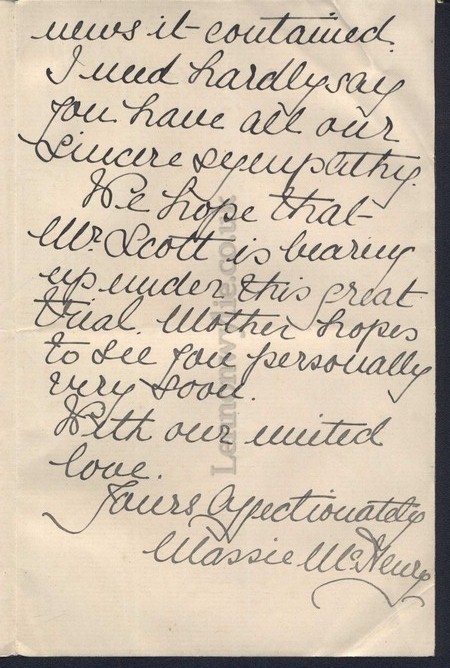 news it contained.
I need hardly say
you have all our
sincere sympathy.
We hope that
Mr. Scott is bearing
up under this great
trial. Mother hopes
to see you personally
very soon.
With our united
love.
Yours Affectionately
Massie McHenry
Lennonwylie.co.uk